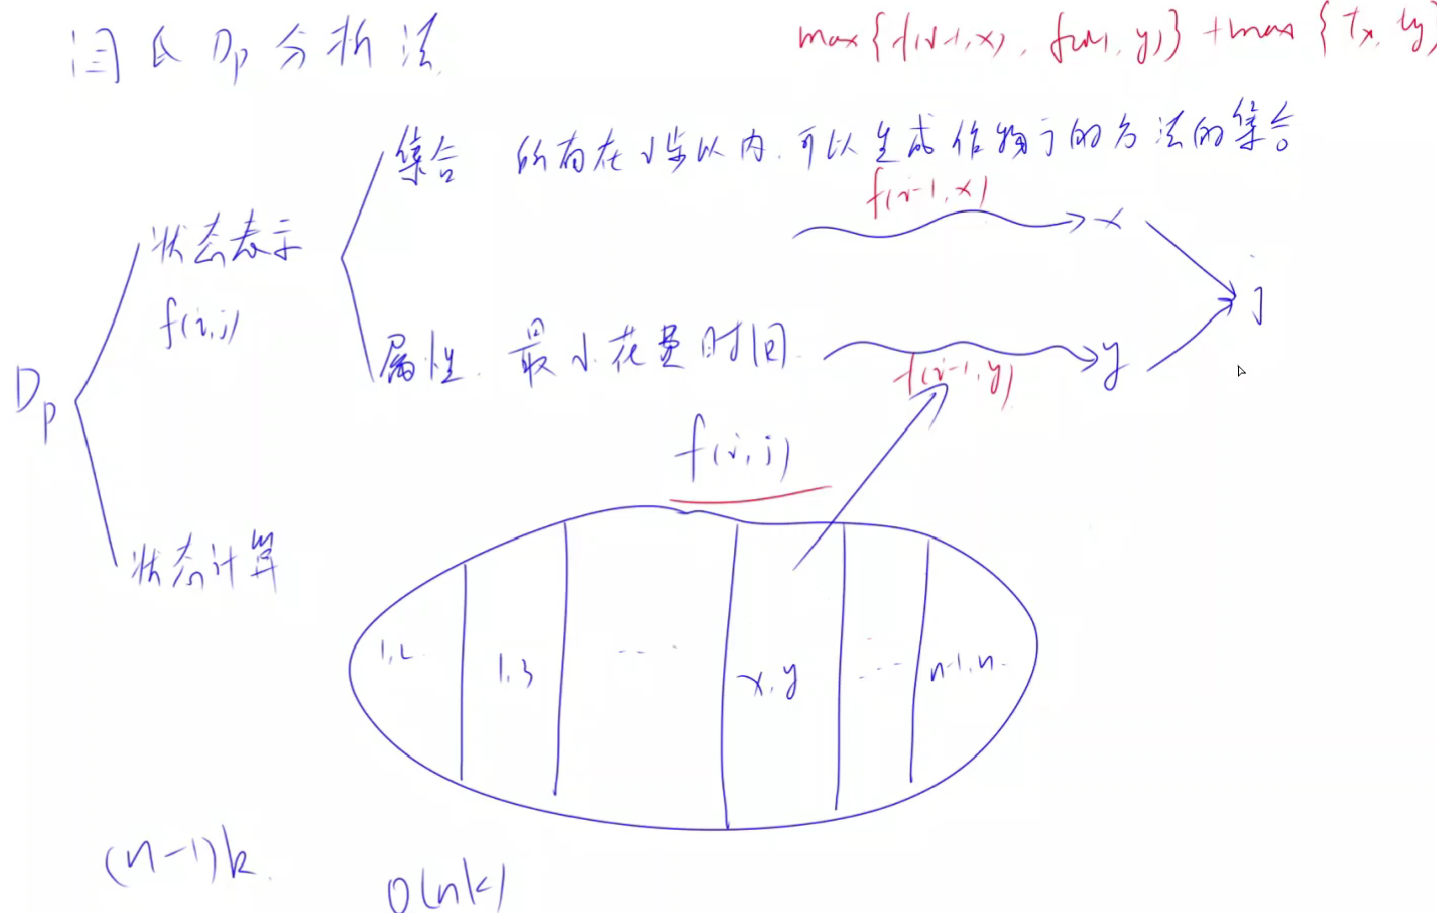 闫氏Dp分析法
max{f(i-1,x), f(i-1,y)}+max{Tx, Ty}
集合 所有在i步以内.可以生成作物j的方法的集合
f(i-1,x)
状态表示
x
j
f(i,j)
属性. 最小花费时间.
y
f(i-1,y)
Dp
f(i,j)
状态计算
1,2 1,3 ---- x,y ---- n-1,n.
(n-1)k.
O(nk)